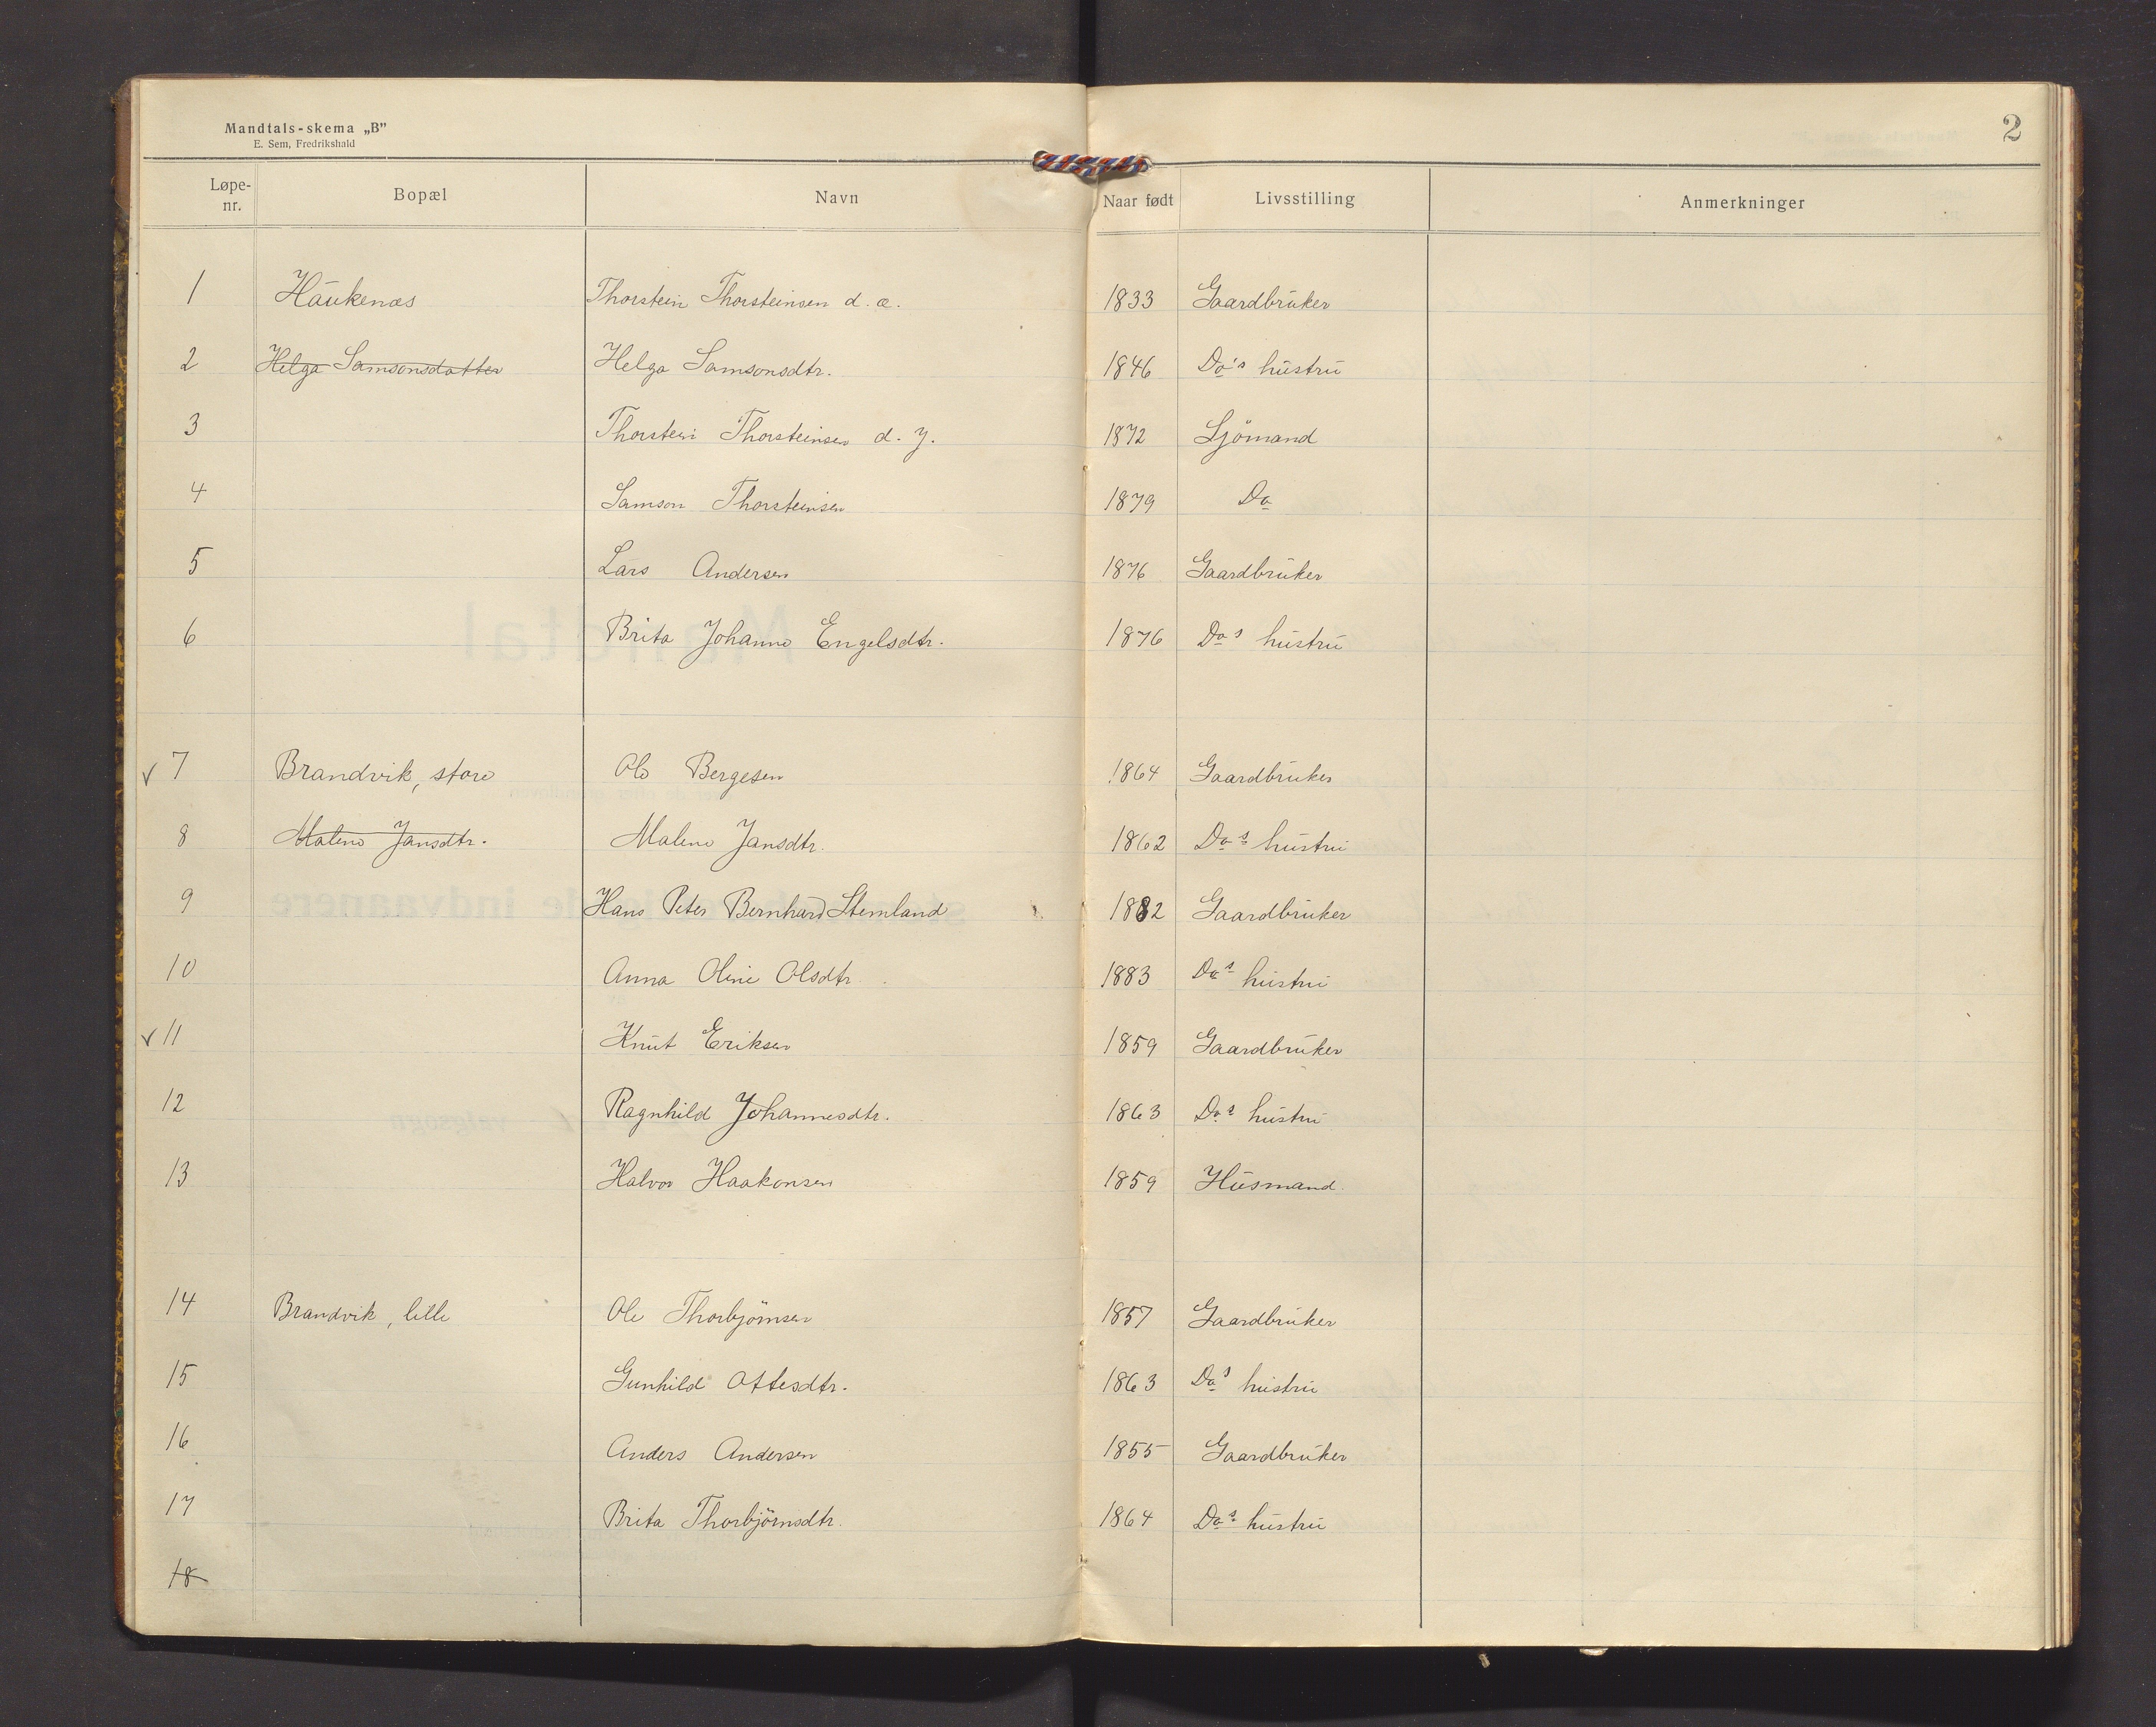 Mandtals-skema „B”
E. Sem, Fredrikshald
2
Løpe-nr. Bopæl Navn Naar født Livsstilling Anmerkninger
1 Haukenæs Thorstein Thorsteinsen d. æ. 1833 Gaardbruker
2 Helga Samsonsdatter Helga Samsonsdtr. 1846 Do's hustru
3 Thorstein Thorsteinsen d. y. 1872 Sjömand
4 Samson Thorsteinsen 1879 Do
5 Lars Andersen 1876 Gaardbruker
6 Brita Johanne Engelsdtr. 1876 Do's hustru
✓ 7 Brandvik, store Ole Bergesen 1864 Gaardbruker
8 Malene Jansdtr. Malene Jansdtr. 1862 Do's hustru
9 Hans Peter Bernhard Stemland 1882 Gaardbruker
10 Anna Oline Olsdtr. 1883 Do's hustru
✓ 11 Knut Eriksen 1859 Gaardbruker
12 Ragnhild Johannesdtr. 1863 Do's hustru
13 Halvor Haakonsen 1859 Husmand
14 Brandvik, lille Ole Thorbjörnsen 1857 Gaardbruker
15 Gunhild Ottesdtr. 1863 Do's hustru
16 Anders Andersen 1855 Gaardbruker
17 Brita Thorbjörnsdtr. 1864 Do's hustru
18